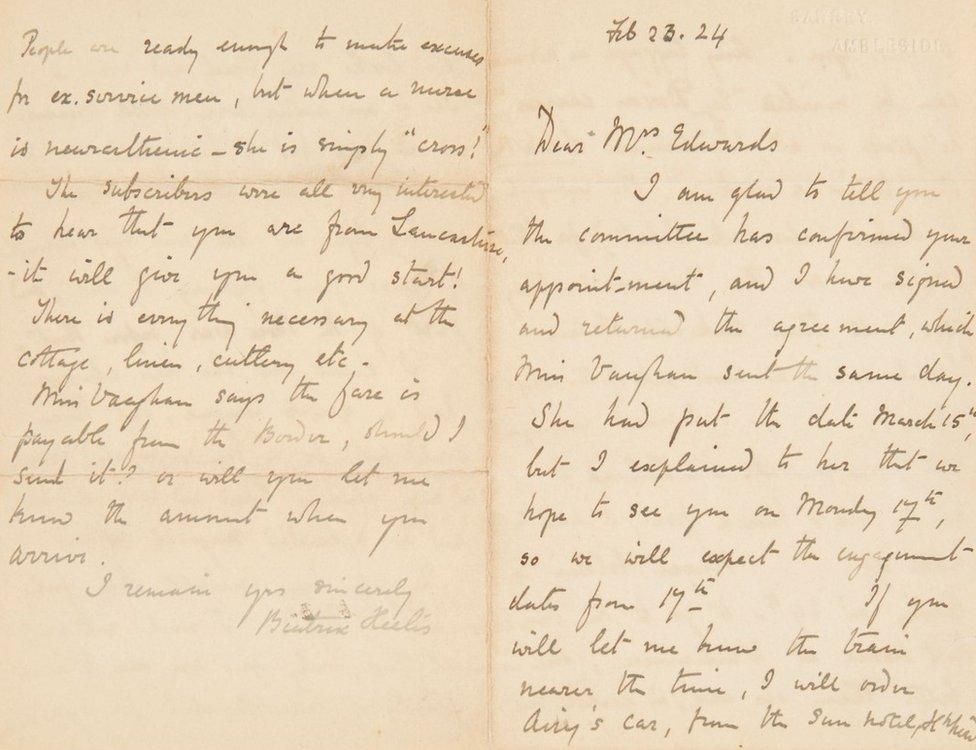 SAWREY.
AMBLESIDE.
Feb 23. 24
Dear Mrs. Edwards
I am glad to tell you
the committee has confirmed your
appoint-ment, and I have signed
and returned the agreement, which
Miss Vaughan sent the same day.
She had put the date March 15th,
but I explained to her that we
hope to see you on Monday 17th,
so we will expect the engagement
dates from 17th If you
will let me know the train
nearer the time, I will order
Airey's car, from the Sun hotel,
People are ready enough to make excuses
for ex. service men, but when a nurse
is neurasthenic – she is simply "cross!"
The subscribers were all very interested
to hear that you are from Lancashire,
- it will give you a good start!
There is everything necessary at the
cottage, linen, cutlery etc -
Miss Vaughan says the fare is
payable from the Border, should I
send it? or will you let me
know the amount when you
arrive.
I remain yrs sincerely
Beatrix Heelis